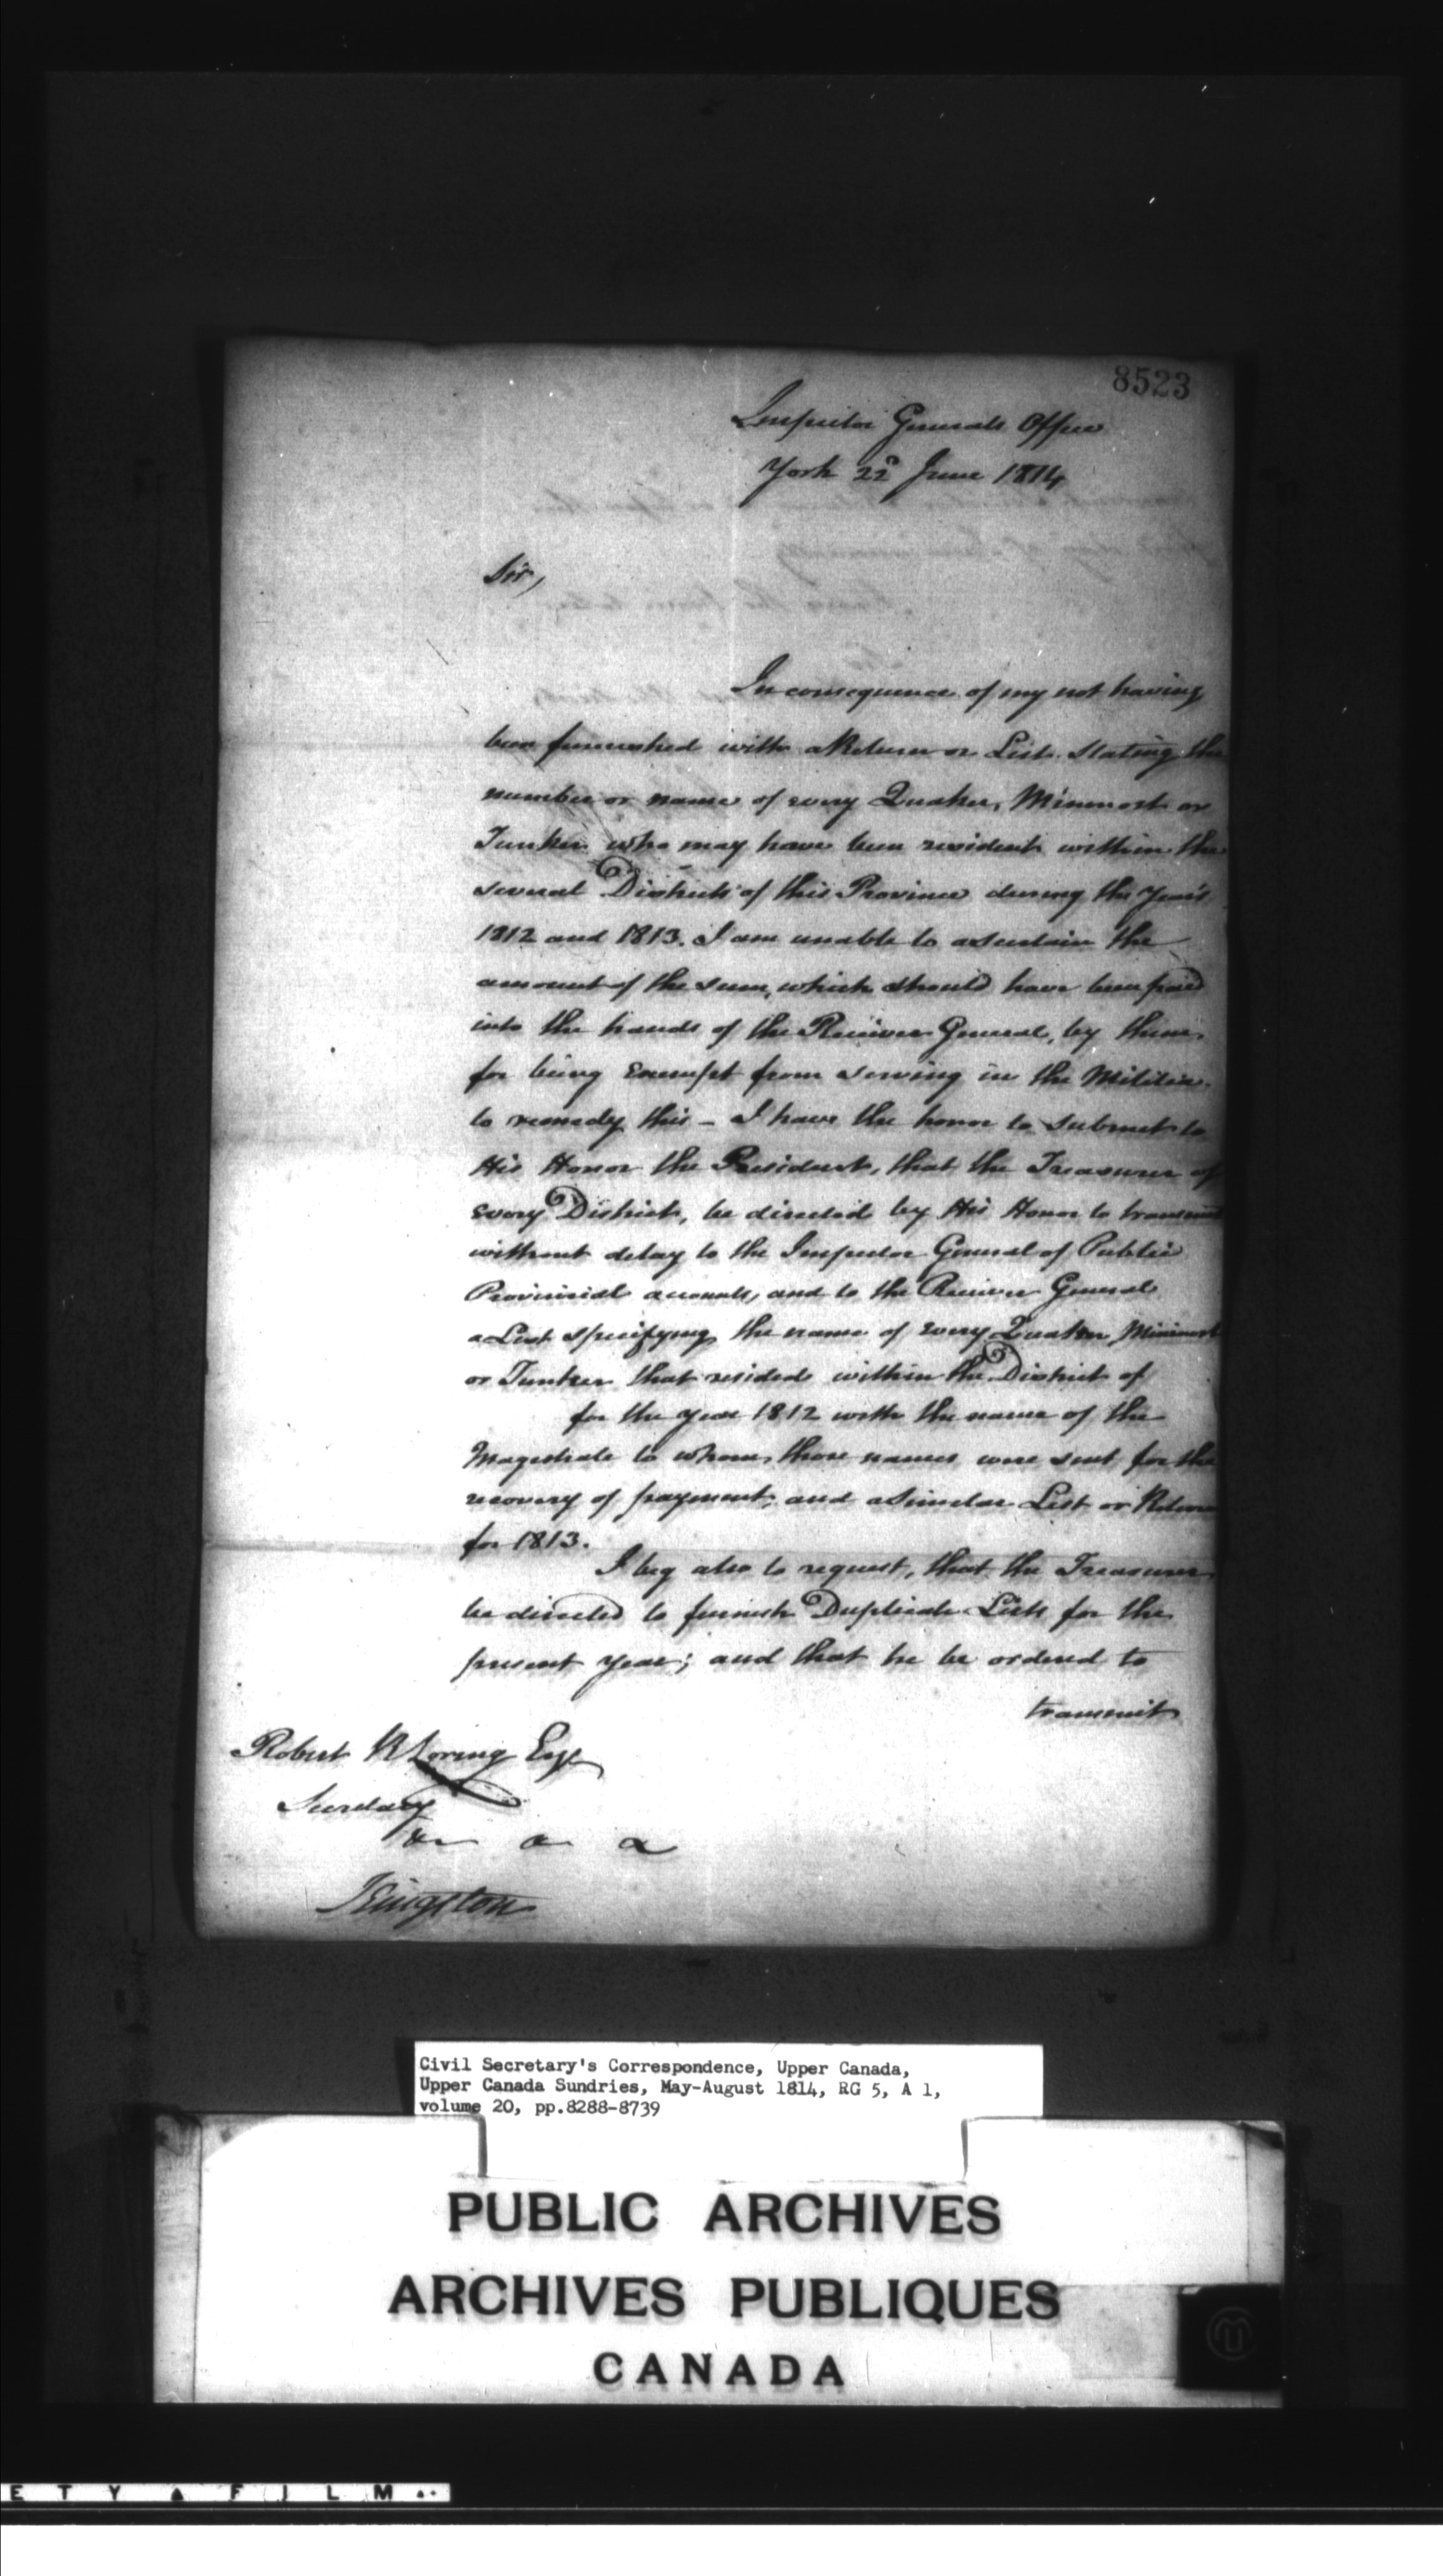 8523
Inspector Generals Office
York 22d June 1814
Sir,
In consequence of my not having
been furnished with a Return or List Stating the
number or name of every Quaker, Minonost or
Tunker who may have been resident within the
several Districts of this Province during the Years
1812 and 1813. I am unable to ascertain the
amount of the sum, which should have been paid
into the hands of the Receiver General, by them
for being Exempt from serving in the Militia.
to remedy this - I have the honor to submit to
His Honor the President, that the Treasurer of
every District, be directed by His Honor to transmit
without delay to the Inspector General of Public
Provincial accounts, and to the Receiver General
a List specifying the name of every Quaker Minonost
or Tunker that resided within the District of
for the year 1812 with the name of the
Magistrate to whom those names were sent for the
recovery of payment, and a similar List or Return
for 1813.
I beg also to request, that the Treasurer
be directed to furnish Duplicate Lists for the
present year; and that he be ordered to
transmit
Robert R Loring Esqr
Secretary
&c &c &c
Kingston
Civil Secretary's Correspondence, Upper Canada,
Upper Canada Sundries, May-August 1814, RG 5, A 1,
volume 20, pp.8288-8739
PUBLIC ARCHIVES
ARCHIVES PUBLIQUES
CANADA
E T Y ▲ F I L M